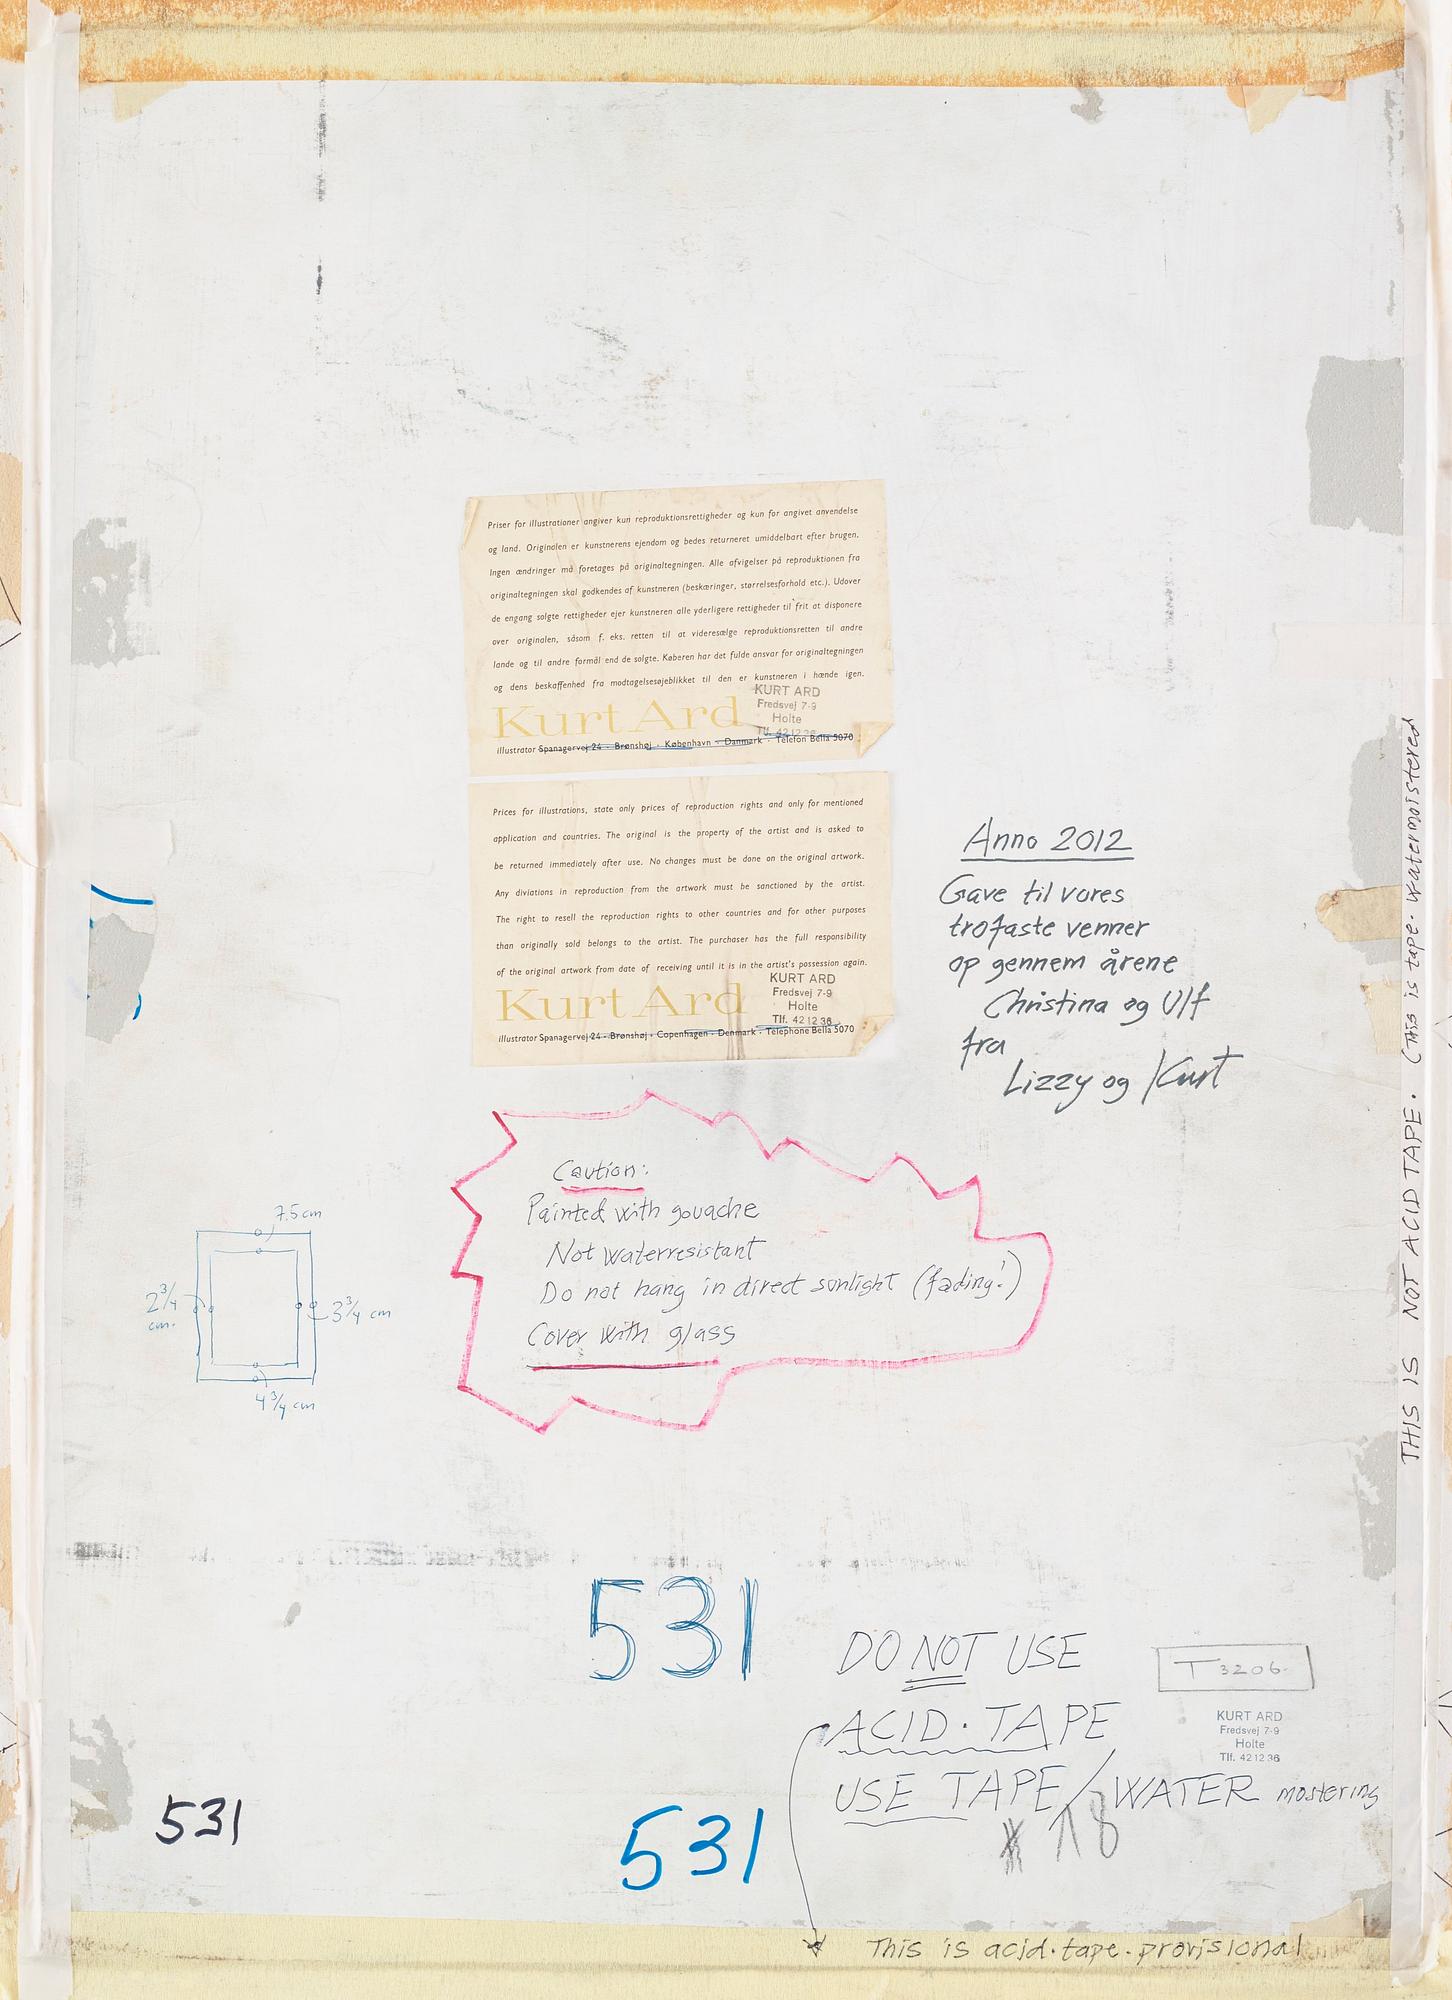 Priser for illustrationer angiver kun reproduktionsrettigheder og kun for angivet anvendelse
og land. Originalen er kunstnerens ejendom og bedes returneret umiddelbart efter brugen.
Ingen ændringer må foretages på originaltegningen. Alle afvigelser på reproduktionen fra
originaltegningen skal godkendes af kunstneren (beskæringer, størrelsesforhold etc.). Udover
de engang solgte rettigheder ejer kunstneren alle yderligere rettigheder til frit at disponere
over originalen, såsom f. eks. retten til at videresælge reproduktionsretten til andre
lande og til andre formål end de solgte. Køberen har det fulde ansvar for originaltegningen
og dens beskaffenhed fra modtagelsesøjeblikket til den er kunstneren i hænde igen.
Kurt Ard
KURT ARD
Fredsvej 7-9
Holte
Tlf. 42 12 36
illustrator Spanagervej 24 - Brønshøj - København - Danmark - Telefon Bella 5070
Prices for illustrations, state only prices of reproduction rights and only for mentioned
application and countries. The original is the property of the artist and is asked to
be returned immediately after use. No changes must be done on the original artwork.
Any diviations in reproduction from the artwork must be sanctioned by the artist.
The right to resell the reproduction rights to other countries and for other purposes
than originally sold belongs to the artist. The purchaser has the full responsibility
of the original artwork from date of receiving until it is in the artist's possession again.
Kurt Ard
KURT ARD
Fredsvej 7-9
Holte
Tlf. 42 12 36
illustrator Spanagervej 24 - Brønshøj - Copenhagen - Denmark - Telephone Bella 5070
Anno 2012
Gave til vores
trofaste venner
op gennem årene
Christina og Ulf
fra
Lizzy og Kurt
THIS IS NOT ACID TAPE. (This is tape. watermoistered
Caution:
Painted with gouache
Not waterresistant
Do not hang in direct sunlight (fading!)
Cover with glass
7.5 cm
2 3/4 cm.
3 3/4 cm
4 3/4 cm
531
DO NOT USE
ACID. TAPE
USE TAPE/WATER mostering
T 3206.
KURT ARD
Fredsvej 7-9
Holte
Tlf. 42 12 36
531
531
18
This is acid. tape. provisional